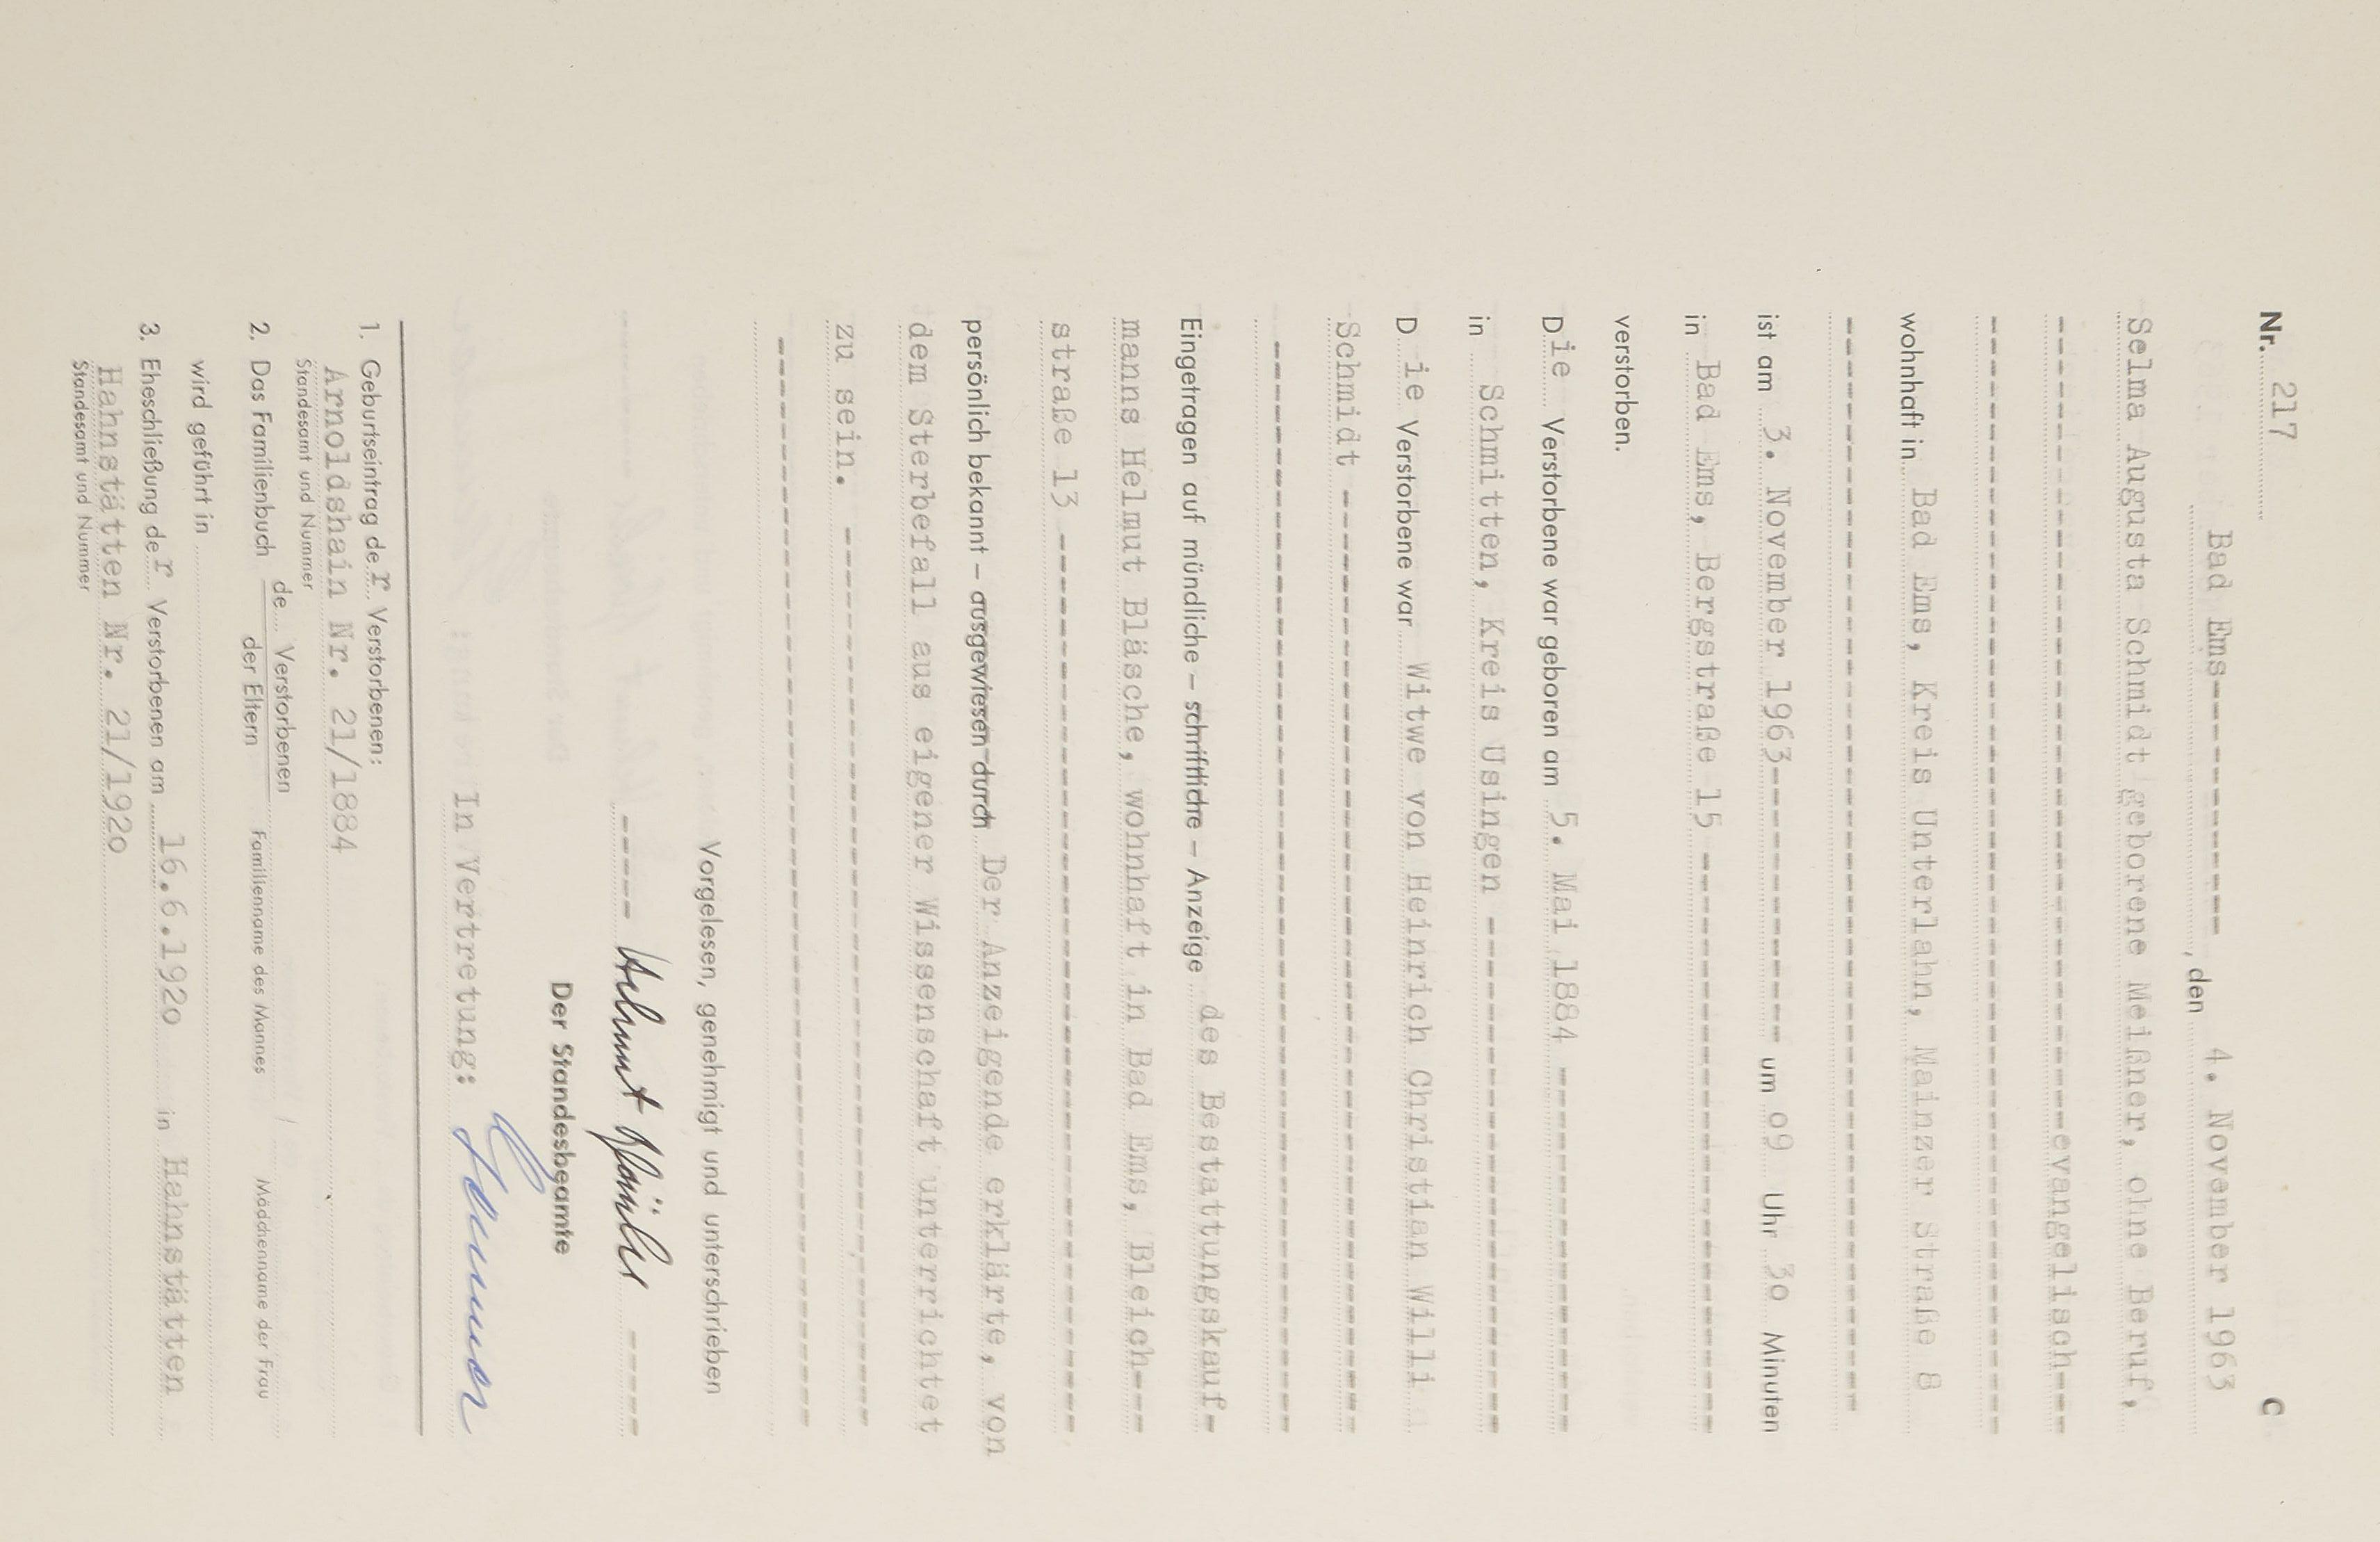 Nr. 217 C
Bad Ems----------, den 4. November 1963
Selma Augusta Schmidt geborene Meißner, ohne Beruf,
--------------------------evangelisch---
wohnhaft in Bad Ems, Kreis Unterlahn, Mainzer Straße 8
ist am 3. November 1963---------- um 09 Uhr 30 Minuten
in Bad Ems, Bergstraße 15 --------------------
verstorben.
Die Verstorbene war geboren am 5. Mai 1884 -------------
in Schmitten, Kreis Usingen ------------------
D ie Verstorbene war Witwe von Heinrich Christian Willi
Schmidt ---------------------------------
Eingetragen auf mündliche – schriftliche – Anzeige des Bestattungskauf-
manns Helmut Bläsche, wohnhaft in Bad Ems, Bleich---
straße 13 --------------------------------
persönlich bekannt – ausgewiesen durch Der Anzeigende erklärte, von
dem Sterbefall aus eigener Wissenschaft unterrichtet
zu sein. --------------------------------
Vorgelesen, genehmigt und unterschrieben
---- Helmut Bläsche ----
Der Standesbeamte
In Vertretung:
1. Geburtseintrag der Verstorbenen:
Arnoldshain Nr. 21/1884
Standesamt und Nummer
2. Das Familienbuch de Verstorbenen
der Eltern
Familienname des Mannes Mädchenname der Frau
wird geführt in
3. Eheschließung der Verstorbenen am 16.6.1920 in Hahnstätten
Hahnstätten Nr. 21/1920
Standesamt und Nummer